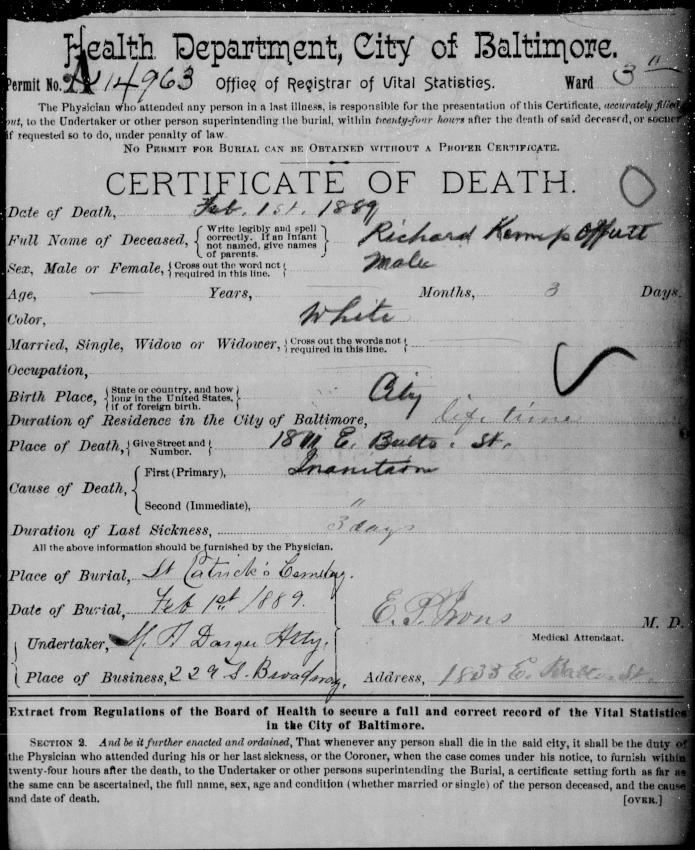 Health Department, City of Baltimore.
Permit No. A 14963 Office of Registrar of Vital Statistics. Ward 3"
The Physician who attended any person in a last illness, is responsible for the presentation of this Certificate, accurately filled
out, to the Undertaker or other person superintending the burial, within twenty-four hours after the death of said deceased, or sooner
if requested so to do, under penalty of law.
NO PERMIT FOR BURIAL CAN BE OBTAINED WITHOUT A PROPER CERTIFICATE.
CERTIFICATE OF DEATH.
Date of Death, Feb. 1st. 1889
Full Name of Deceased, { Write legibly and spell correctly. If an Infant not named, give names of parents. } Richard Kemp Offutt
Sex, Male or Female, { Cross out the word not required in this line. } Male
Age, Years, Months, 3 Days.
Color, White
Married, Single, Widow or Widower, { Cross out the words not required in this line. }
Occupation,
Birth Place, { State or country, and how long in the United States, if of foreign birth. } City
Duration of Residence in the City of Baltimore, life time
Place of Death, { Give Street and Number. } 1811 E. Balto. St.
Cause of Death, { First (Primary), Inanition
Second (Immediate), "
Duration of Last Sickness, 3 days
All the above information should be furnished by the Physician.
Place of Burial, St Patrick's Cemetery.
Date of Burial, Feb 1st 1889.
E. P. Irons M. D.
Undertaker, M. A Daiger Atty,
Medical Attendant.
Place of Business, 229 S. Broadway, Address, 1833 E. Balto. St.
Extract from Regulations of the Board of Health to secure a full and correct record of the Vital Statistics
in the City of Baltimore.
SECTION 2. And be it further enacted and ordained, That whenever any person shall die in the said city, it shall be the duty of
the Physician who attended during his or her last sickness, or the Coroner, when the case comes under his notice, to furnish within
twenty-four hours after the death, to the Undertaker or other persons superintending the Burial, a certificate setting forth as far as
the same can be ascertained, the full name, sex, age and condition (whether married or single) of the person deceased, and the cause
and date of death. [OVER.]